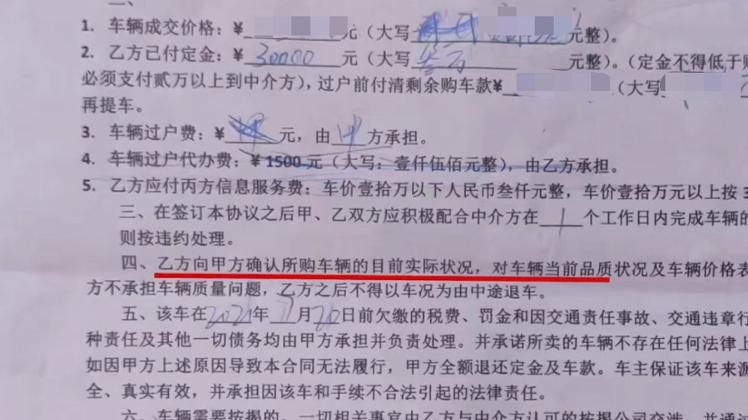 1. 车辆成交价格：￥ 元（大写 元整）。
2. 乙方已付定金：￥ 30000 元（大写 叁万 元整）。（定金不得低于
必须支付贰万以上到中介方），过户前付清剩余购车款￥ （大写
再提车。
3. 车辆过户费：￥ 元，由 甲 方承担。
4. 车辆过户代办费：￥1500 元（大写：壹仟伍佰元整），由乙方承担。
5. 乙方应付丙方信息服务费：车价壹拾万以下人民币叁仟元整，车价壹拾万元以上按 3
三、在签订本协议之后甲、乙双方应积极配合中介方在 1 个工作日内完成车辆的
则按违约处理。
四、乙方向甲方确认所购车辆的目前实际状况，对车辆当前品质状况及车辆价格表
方不承担车辆质量问题，乙方之后不得以车况为由中途退车。
五、该车在 2021 年 月 日前欠缴的税费、罚金和因交通责任事故、交通违章行
种责任及其他一切债务均由甲方承担并负责处理。并承诺所卖的车辆不存在任何法律上
如因甲方上述原因导致本合同无法履行，甲方全额退还定金及车款。车主保证该车来源
全、真实有效，并承担因该车和手续不合法引起的法律责任。